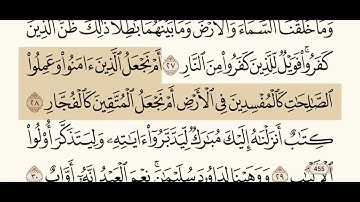 وَمَا خَلَقْنَا ٱلسَّمَآءَ وَٱلْأَرْضَ وَمَا بَيْنَهُمَا بَٰطِلًا ذَٰلِكَ ظَنُّ ٱلَّذِينَ
كَفَرُوا۟ فَوَيْلٌ لِّلَّذِينَ كَفَرُوا۟ مِنَ ٱلنَّارِ ٢٧ أَمْ نَجْعَلُ ٱلَّذِينَ ءَامَنُوا۟ وَعَمِلُوا۟
ٱلصَّٰلِحَٰتِ كَٱلْمُفْسِدِينَ فِى ٱلْأَرْضِ أَمْ نَجْعَلُ ٱلْمُتَّقِينَ كَٱلْفُجَّارِ ٢٨
كِتَٰبٌ أَنزَلْنَٰهُ إِلَيْكَ مُبَٰرَكٌ لِّيَدَّبَّرُوٓا۟ ءَايَٰتِهِۦ وَلِيَتَذَكَّرَ أُو۟لُوا۟
ٱلْأَلْبَٰبِ ٢٩ وَوَهَبْنَا لِدَاوُۥدَ سُلَيْمَٰنَ نِعْمَ ٱلْعَبْدُ إِنَّهُۥٓ أَوَّابٌ ٣٠
455